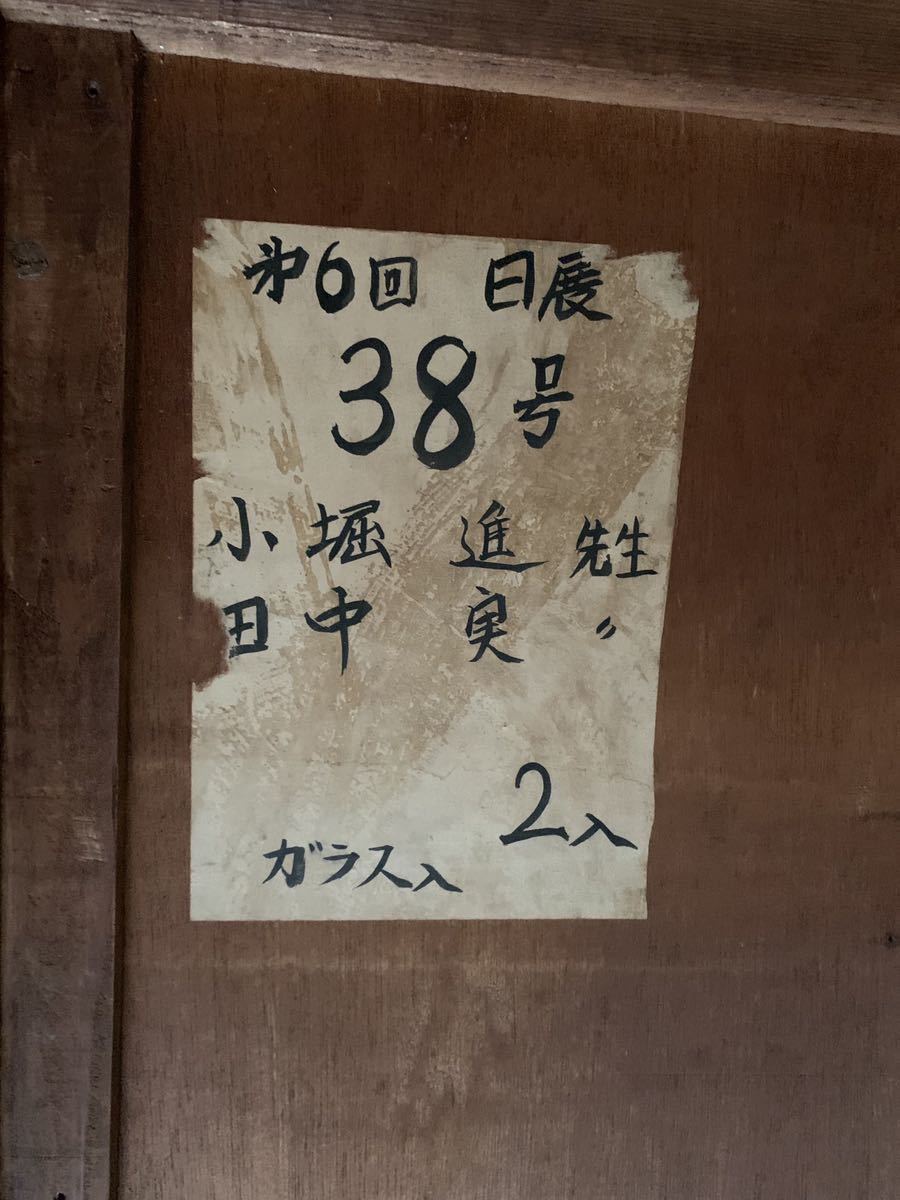 第6回 日展
38号
小堀 進 先生
田中 実 〃
2入
ガラス入